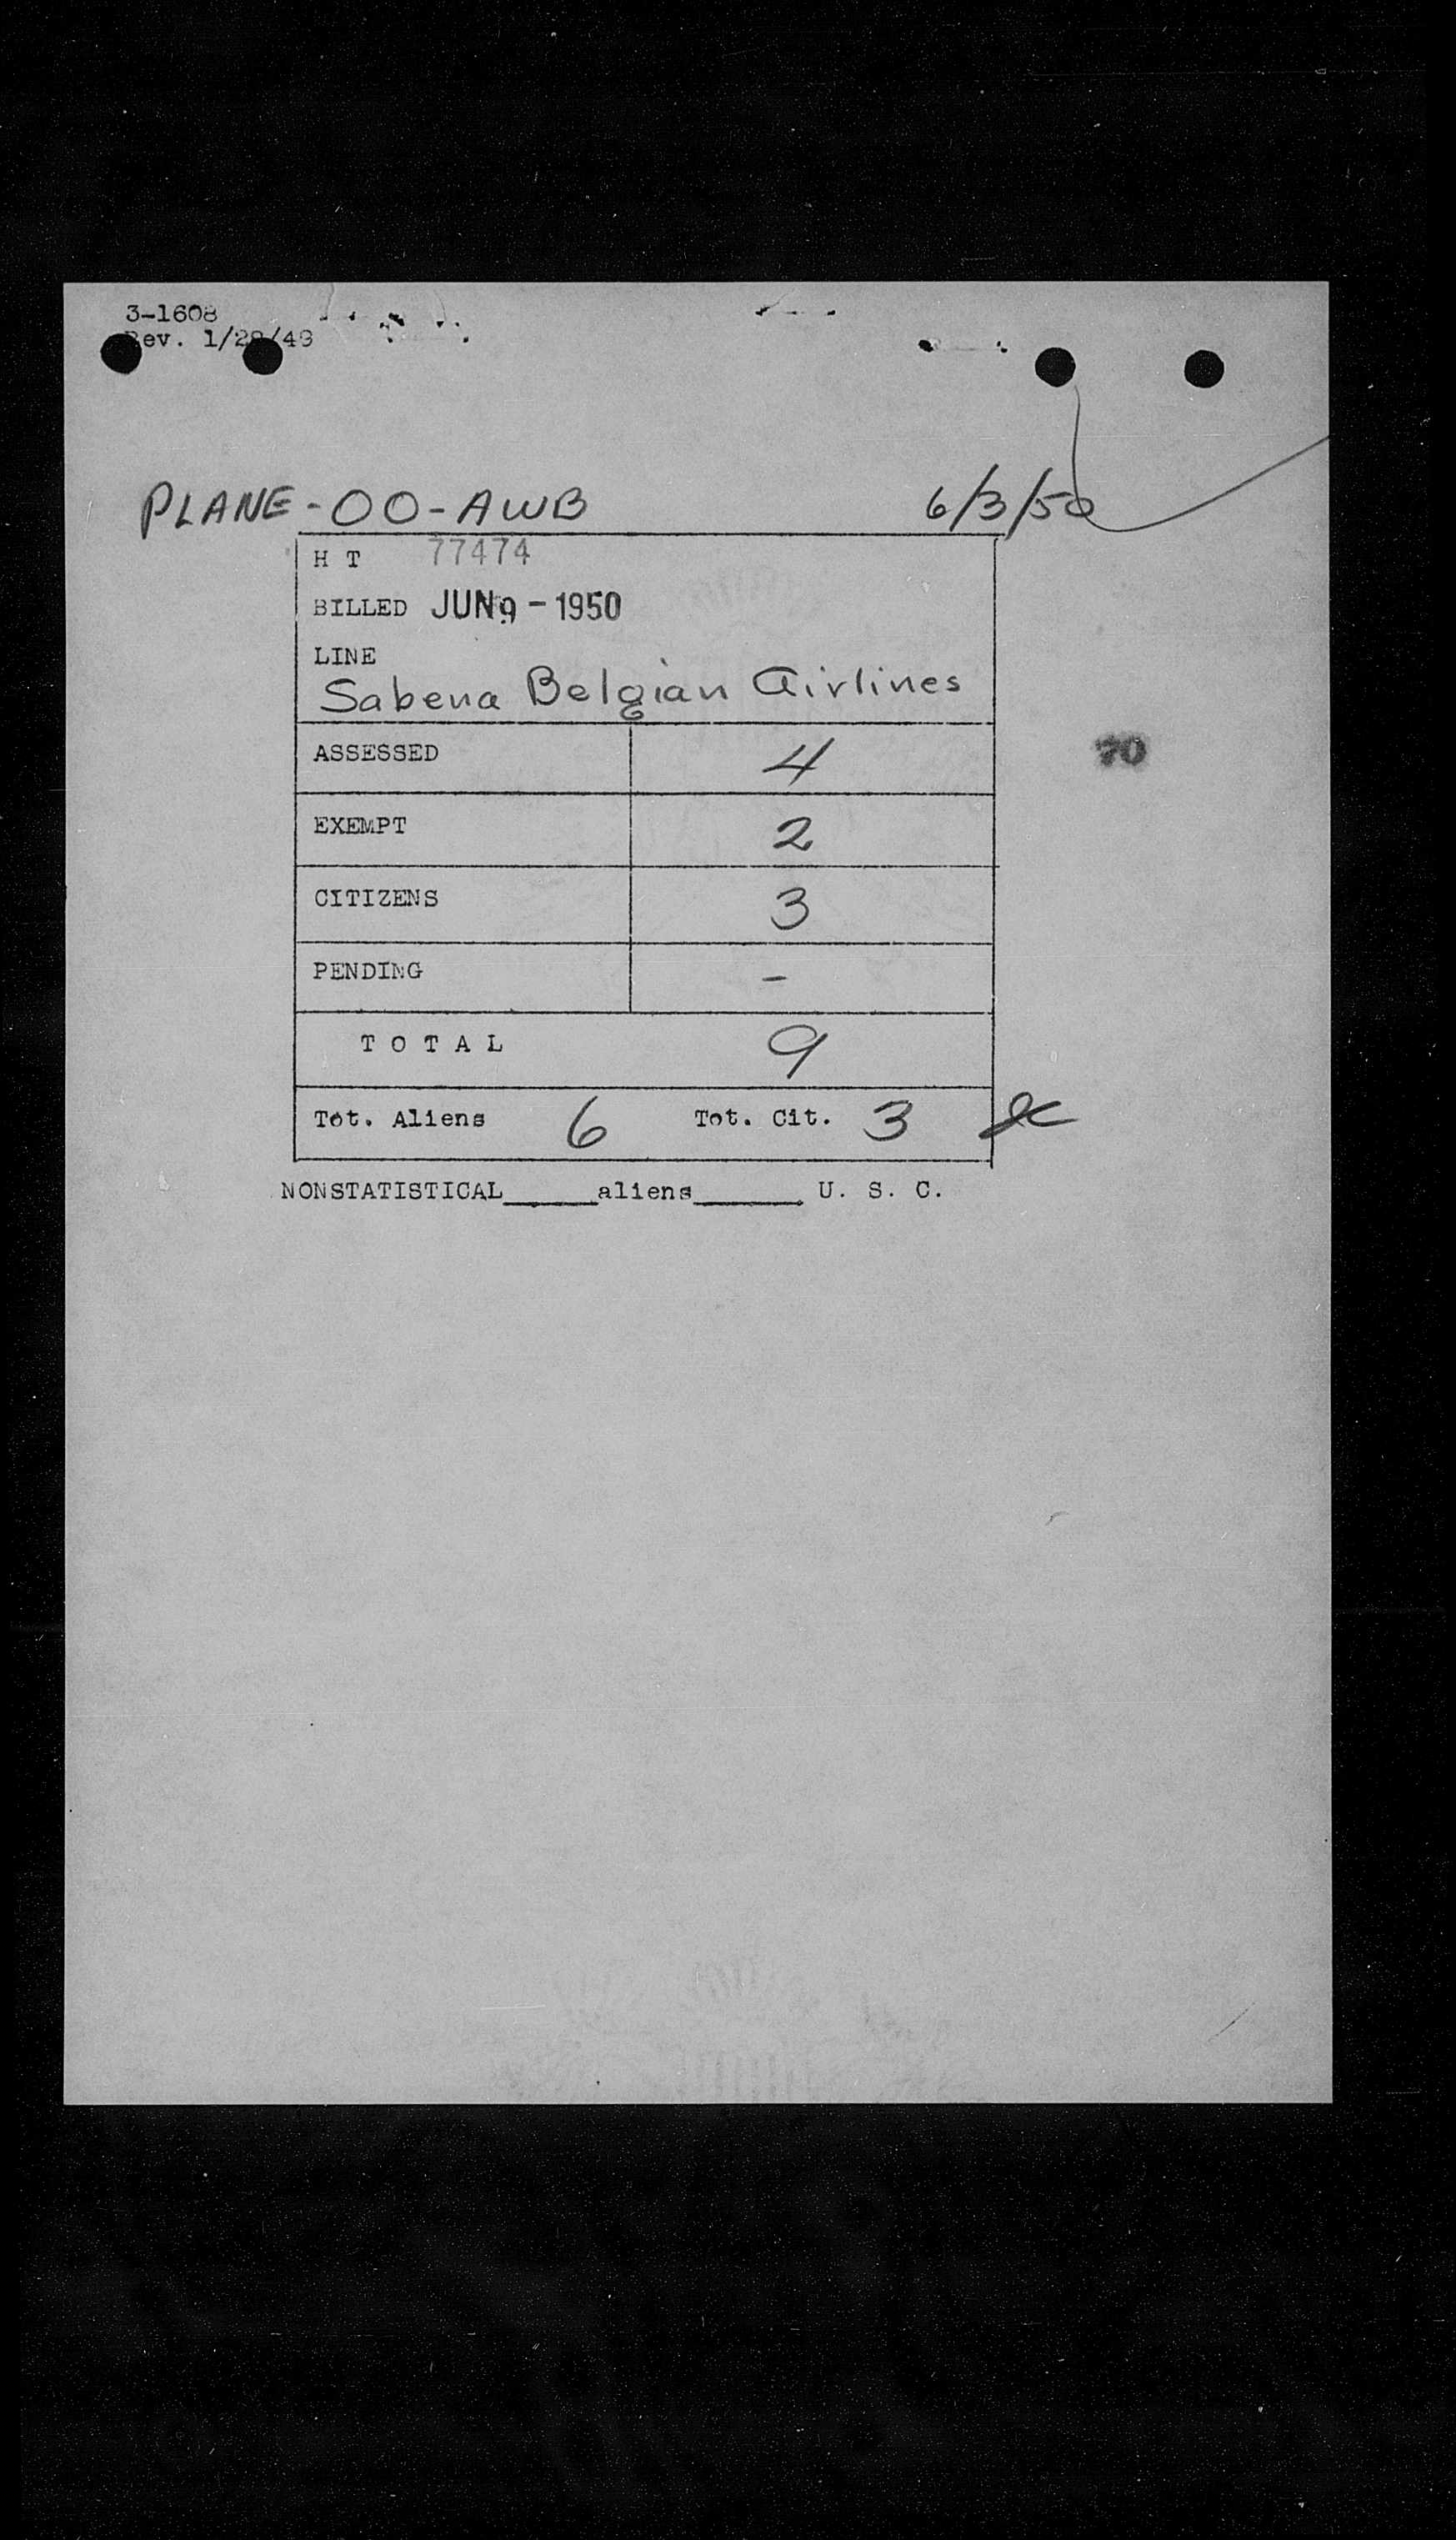 3-1608
Rev. 1/28/49
PLANE-OO-AWB 6/3/50
H T 77474
BILLED JUN 9-1950
LINE
Sabena Belgian Airlines
ASSESSED 4
70
EXEMPT 2
CITIZENS 3
PENDING -
T O T A L 9
Tot. Aliens 6 Tot. Cit. 3
NONSTATISTICAL______aliens_______ U. S. C.